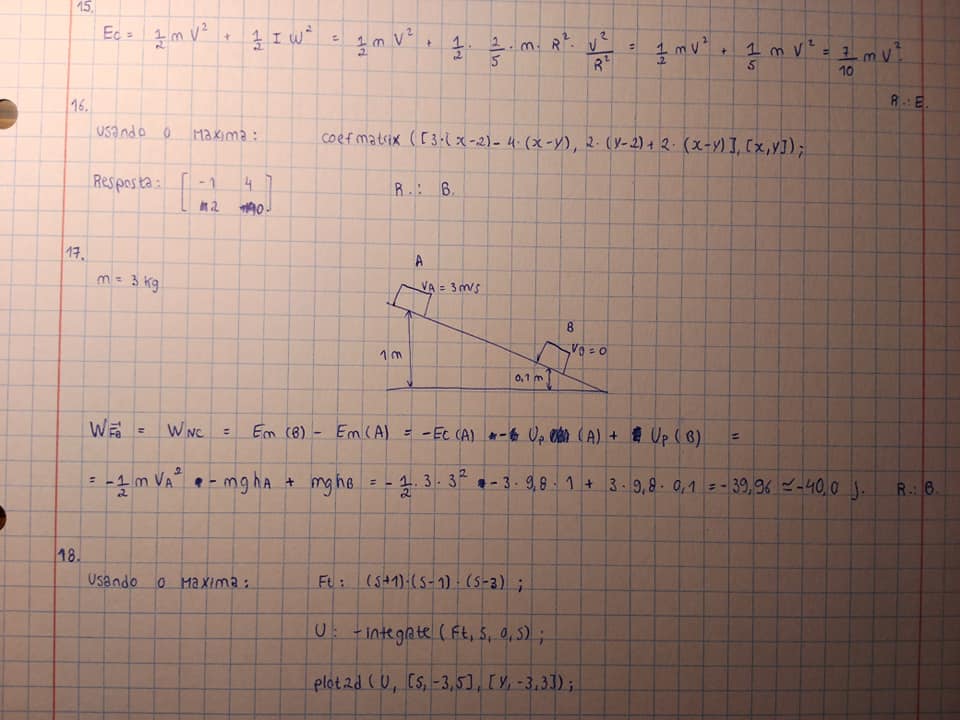 15.
Ec = 1/2 m V² + 1/2 I W² = 1/2 m V² + 1/2 · 2/5 · m · R² · V²/R² = 1/2 m V² + 1/5 m V² = 7/10 m V².
R.: E.
16.
Usando o Maxima: coefmatrix ([3·(x-2)-4·(x-y), 2·(y-2)+2·(x-y)], [x,y]);
Resposta: [ -1 4
2 0 ] R.: B.
17.
m = 3 kg
A
VA = 3 m/s
B
V0 = 0
1 m
0,1 m
WFa = WNC = Em (B) - Em (A) = -Ec (A) - Up (A) + Up (B) =
= -1/2 m VA² - mghA + mghB = -1/2 · 3 · 3² - 3 · 9,8 · 1 + 3 · 9,8 · 0,1 = -39,96 ≃ -40,0 J. R.: B.
18.
Usando o Maxima: Ft: (s+1)·(s-1)·(s-3) ;
U: -integrate (Ft, s, 0, s) ;
plot2d (U, [s, -3,5], [y, -3,3]);